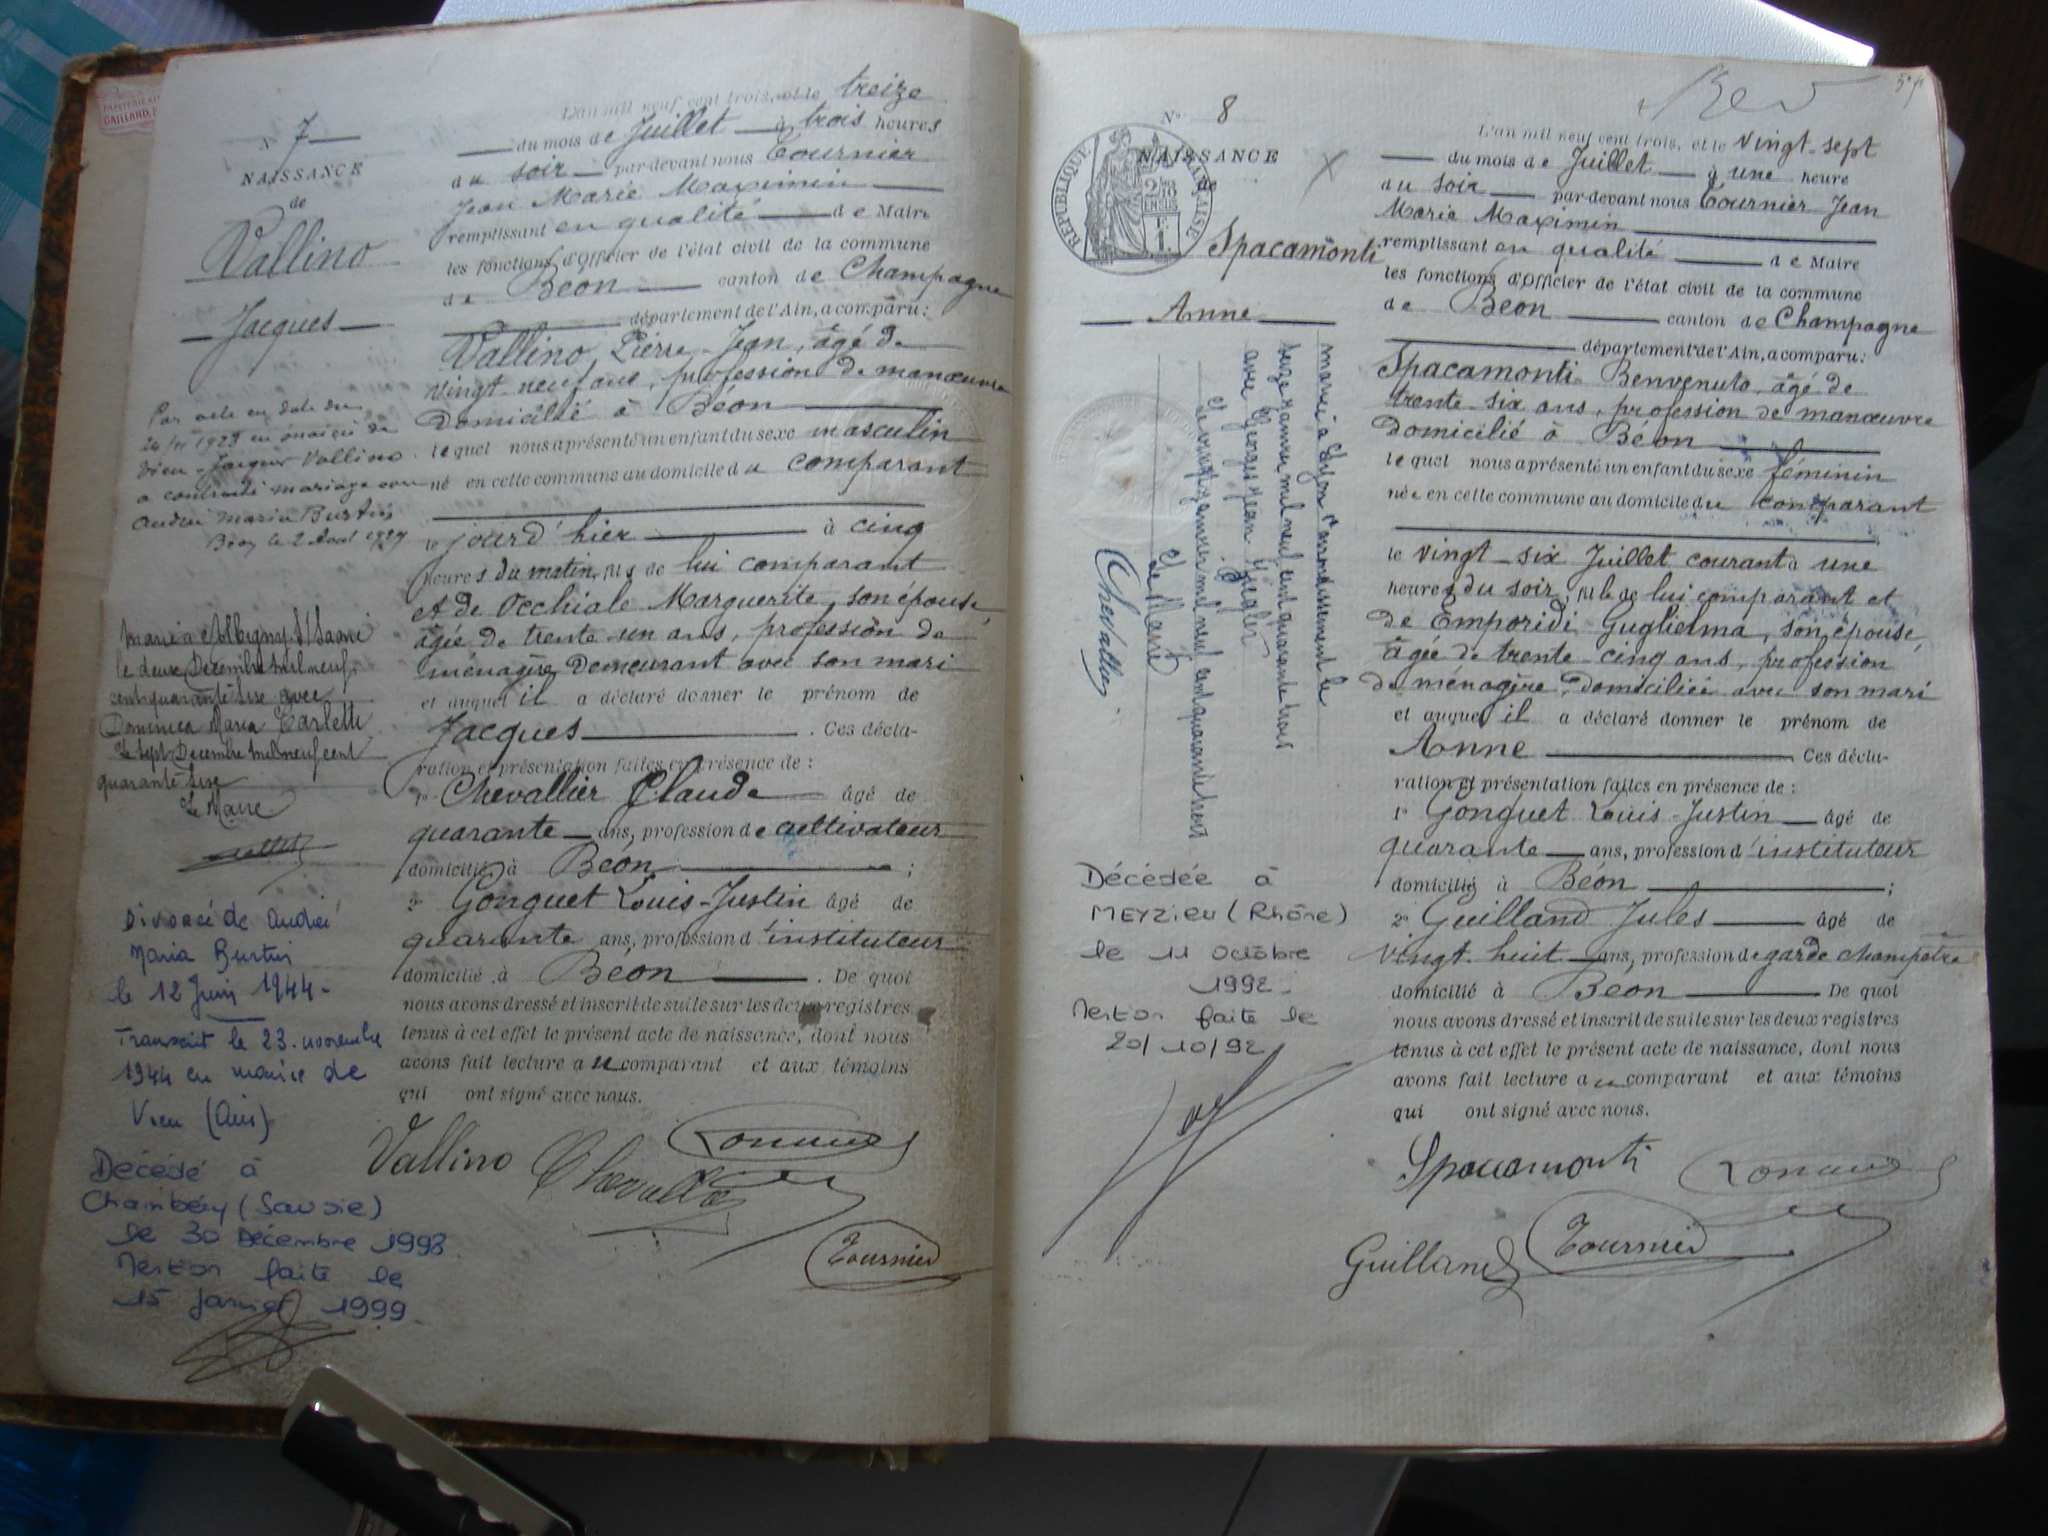 PAPETERIE
GAILLARD
N° 7
NAISSANCE
de
Vallino
Jacques
Par acte en date du
en mairie de
Vieu Jacques Vallino
a contracté mariage avec
Andréi Maria Burtin
Béon le 2 Aout
Marié à Albigny S/Saone
le deux Decembre mil neuf
cent quarante six avec
Dominica Maria Carletti
Le sept Decembre mil neuf cent
quarante six
Le Maire
Divorcé de Andréi
Maria Burtin
le 12 Juin 1944 -
Transcrit le 23 novembre
1944 en mairie de
Vieu (Ain)
Décédé à
Chambéry (Savoie)
le 30 Décembre 1998
Mention faite le
15 janvier 1999
L'an mil neuf cent trois, et le treize
du mois de Juillet à trois heures
du soir par-devant nous Tournier
Jean Marie Maximin
remplissant en qualité de Maire
les fonctions d'Officier de l'état civil de la commune
de Béon canton de Champagne
département de l'Ain, a comparu :
Vallino Pierre-Jean, âgé de
vingt neuf ans, profession de manœuvre
domicilié à Béon
lequel nous a présenté un enfant du sexe masculin
né en cette commune au domicile du comparant
le jourd'hier à cinq
heures du matin, fils de lui comparant
et de Occhiale Marguerite, son épouse,
âgée de trente un ans, profession de
ménagère demeurant avec son mari
et auquel il a déclaré donner le prénom de
Jacques . Ces décla-
ration et présentation faites en présence de :
1° Chevallier Claude âgé de
quarante ans, profession de cultivateur
domicilié à Béon ;
2° Gonguet Louis-Justin âgé de
quarante ans, profession d'instituteur
domicilié à Béon . De quoi
nous avons dressé et inscrit de suite sur les deux registres
tenus à cet effet le présent acte de naissance, dont nous
avons fait lecture au comparant et aux témoins
qui ont signé avec nous.
Vallino
Tournier
N° 8
RÉPUBLIQUE FRANÇAISE
NAISSANCE
de
Spacamonti
Anne
mariée à Lyon 1er arrondissement le
seize janvier mil neuf cent quarante trois
avec Georges Jean Ziegler
Le vingt janvier mil neuf cent quarante trois
Le Maire
Chevallier
Décédée à
MEYZIEU (Rhône)
le 11 octobre
1992.
Mention faite le
20/10/92
L'an mil neuf cent trois, et le vingt-sept
du mois de Juillet à une heure
du soir par-devant nous Tournier Jean
Marie Maximin
remplissant en qualité de Maire
les fonctions d'Officier de l'état civil de la commune
de Béon canton de Champagne
département de l'Ain, a comparu :
Spacamonti Benvenuto, âgé de
trente-six ans, profession de manœuvre
domicilié à Béon
lequel nous a présenté un enfant du sexe féminin
née en cette commune au domicile du comparant
le vingt-six Juillet courant à une
heures du soir, fille de lui comparant et
de Emporidi Guglielma, son épouse,
âgée de trente-cinq ans, profession
de ménagère, domiciliée avec son mari
et auquel il a déclaré donner le prénom de
Anne Ces décla-
ration et présentation faites en présence de :
1° Gonguet Louis-Justin âgé de
quarante ans, profession d'instituteur
domicilié à Béon ;
2° Guilland Jules âgé de
vingt-huit ans, profession de garde champêtre
domicilié à Béon De quoi
nous avons dressé et inscrit de suite sur les deux registres
tenus à cet effet le présent acte de naissance, dont nous
avons fait lecture au comparant et aux témoins
qui ont signé avec nous.
Spacamonti
Guilland
Tournier